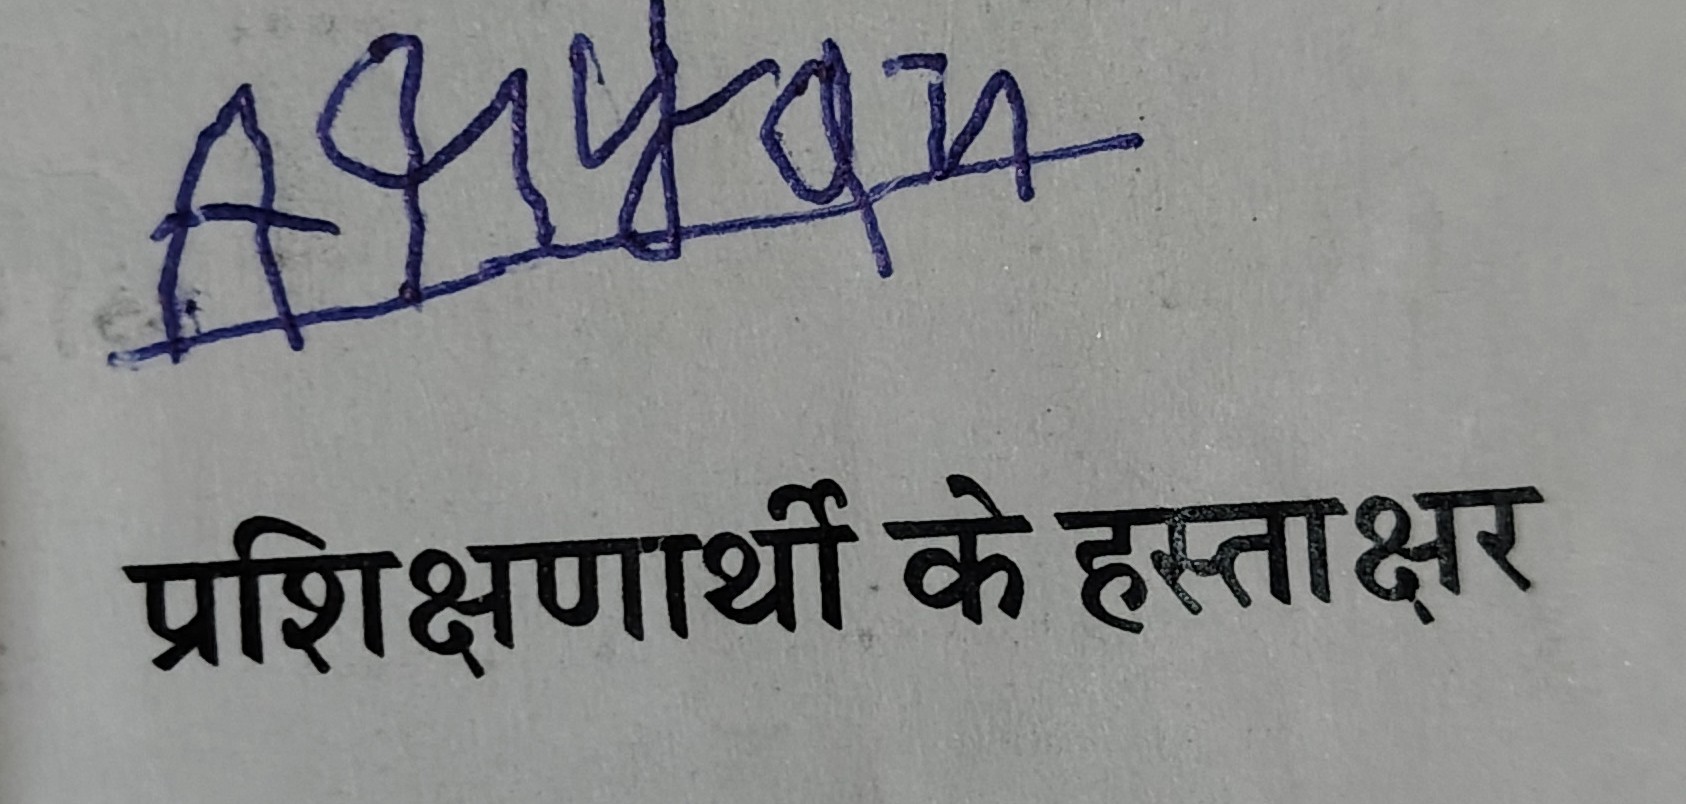 Aryan
प्रशिक्षणार्थी के हस्ताक्षर